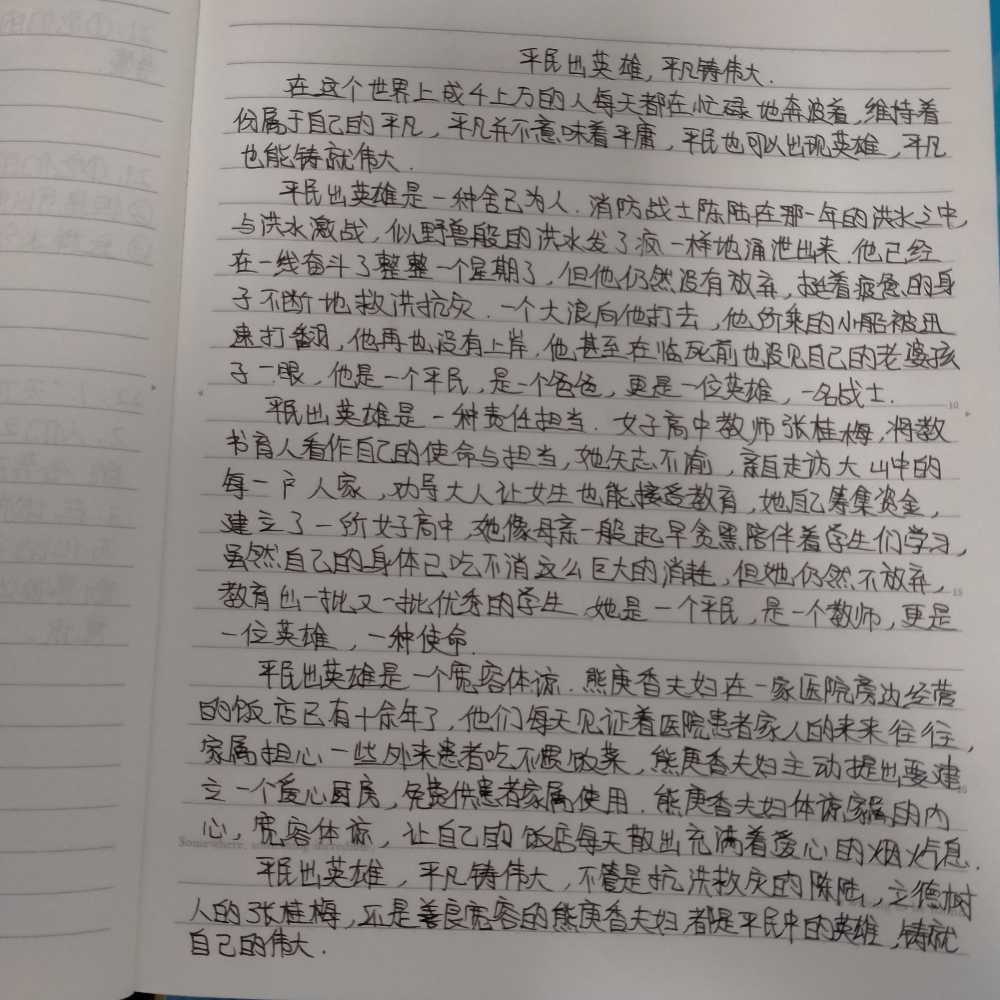 平民出英雄,平凡铸伟大.
在这个世界上成千上万的人每天都在忙碌地奔波着,维持着
份属于自己的平凡,平凡并不意味着平庸,平民也可以出现英雄,平凡
也能铸就伟大.
平民出英雄是一种舍己为人.消防战士陈陆在那一年的洪水之中,
与洪水激战,似野兽般的洪水发了疯一样地涌泄出来.他已经
在一线奋斗了整整一个星期了,但他仍然没有放弃,拖着疲惫的身
子不断地救洪抗灾.一个大浪向他打去,他所乘的小船被迅
速打翻,他再也没有上岸,他甚至在临死前也没见自己的老婆孩
子一眼,他是一个平民,是一个爸爸,更是一位英雄,一名战士.
平民出英雄是一种责任担当.女子高中教师张桂梅,将教
书育人看作自己的使命与担当,她矢志不渝,亲自走访大山中的
每一户人家,劝导大人让女生也能接受教育,她自己筹集资金,
建立了一所女子高中,她像母亲一般起早贪黑陪伴着学生们学习,
虽然自己的身体已吃不消这么巨大的消耗,但她仍然不放弃,
教育出一批又一批优秀的学生.她是一个平民,是一个教师,更是
一位英雄,一种使命.
平民出英雄是一个宽容体谅.熊庚香夫妇在一家医院旁边经营
的饭店已有十余年了,他们每天见证着医院患者家人的来来往往,
家属担心一些外来患者吃不惯做菜,熊庚香夫妇主动提出要建
立一个爱心厨房,免费供患者家属使用.熊庚香夫妇体谅家属的内
心,宽容体谅,让自己的饭店每天散出充满着爱心的烟火气息.
平民出英雄,平凡铸伟大,不管是抗洪救灾的陈陆,立德树
人的张桂梅,还是善良宽容的熊庚香夫妇都是平民中的英雄,铸就
自己的伟大.